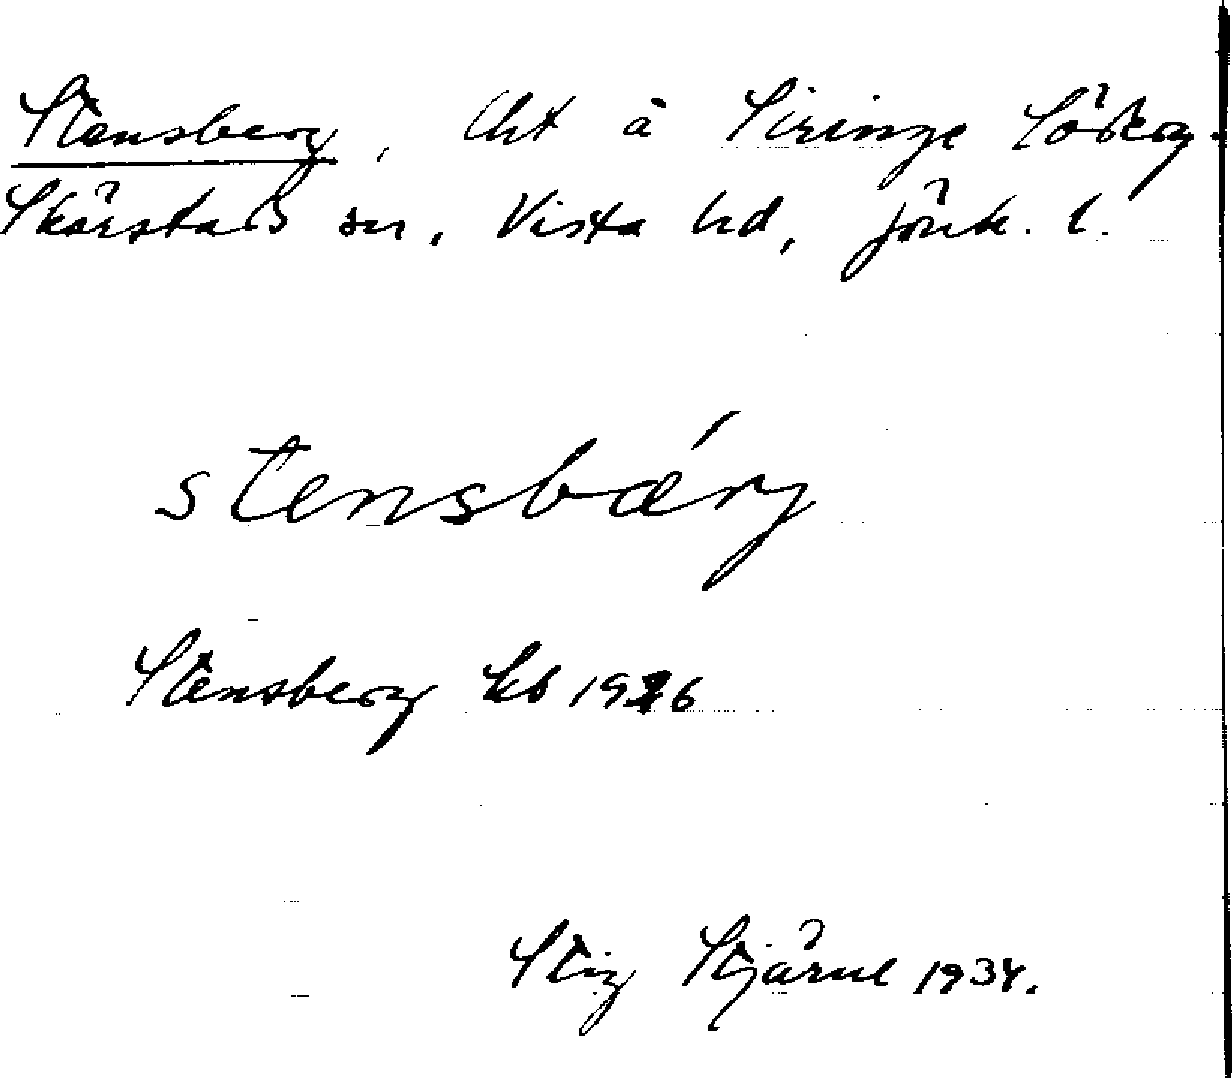 Stensberg, lht å Siringe Söderg.
Skärstad sn, Vista hd, Jönk. l.
stensbǽrg
Stensberg kb 1926
Stig Stjärne 1934.